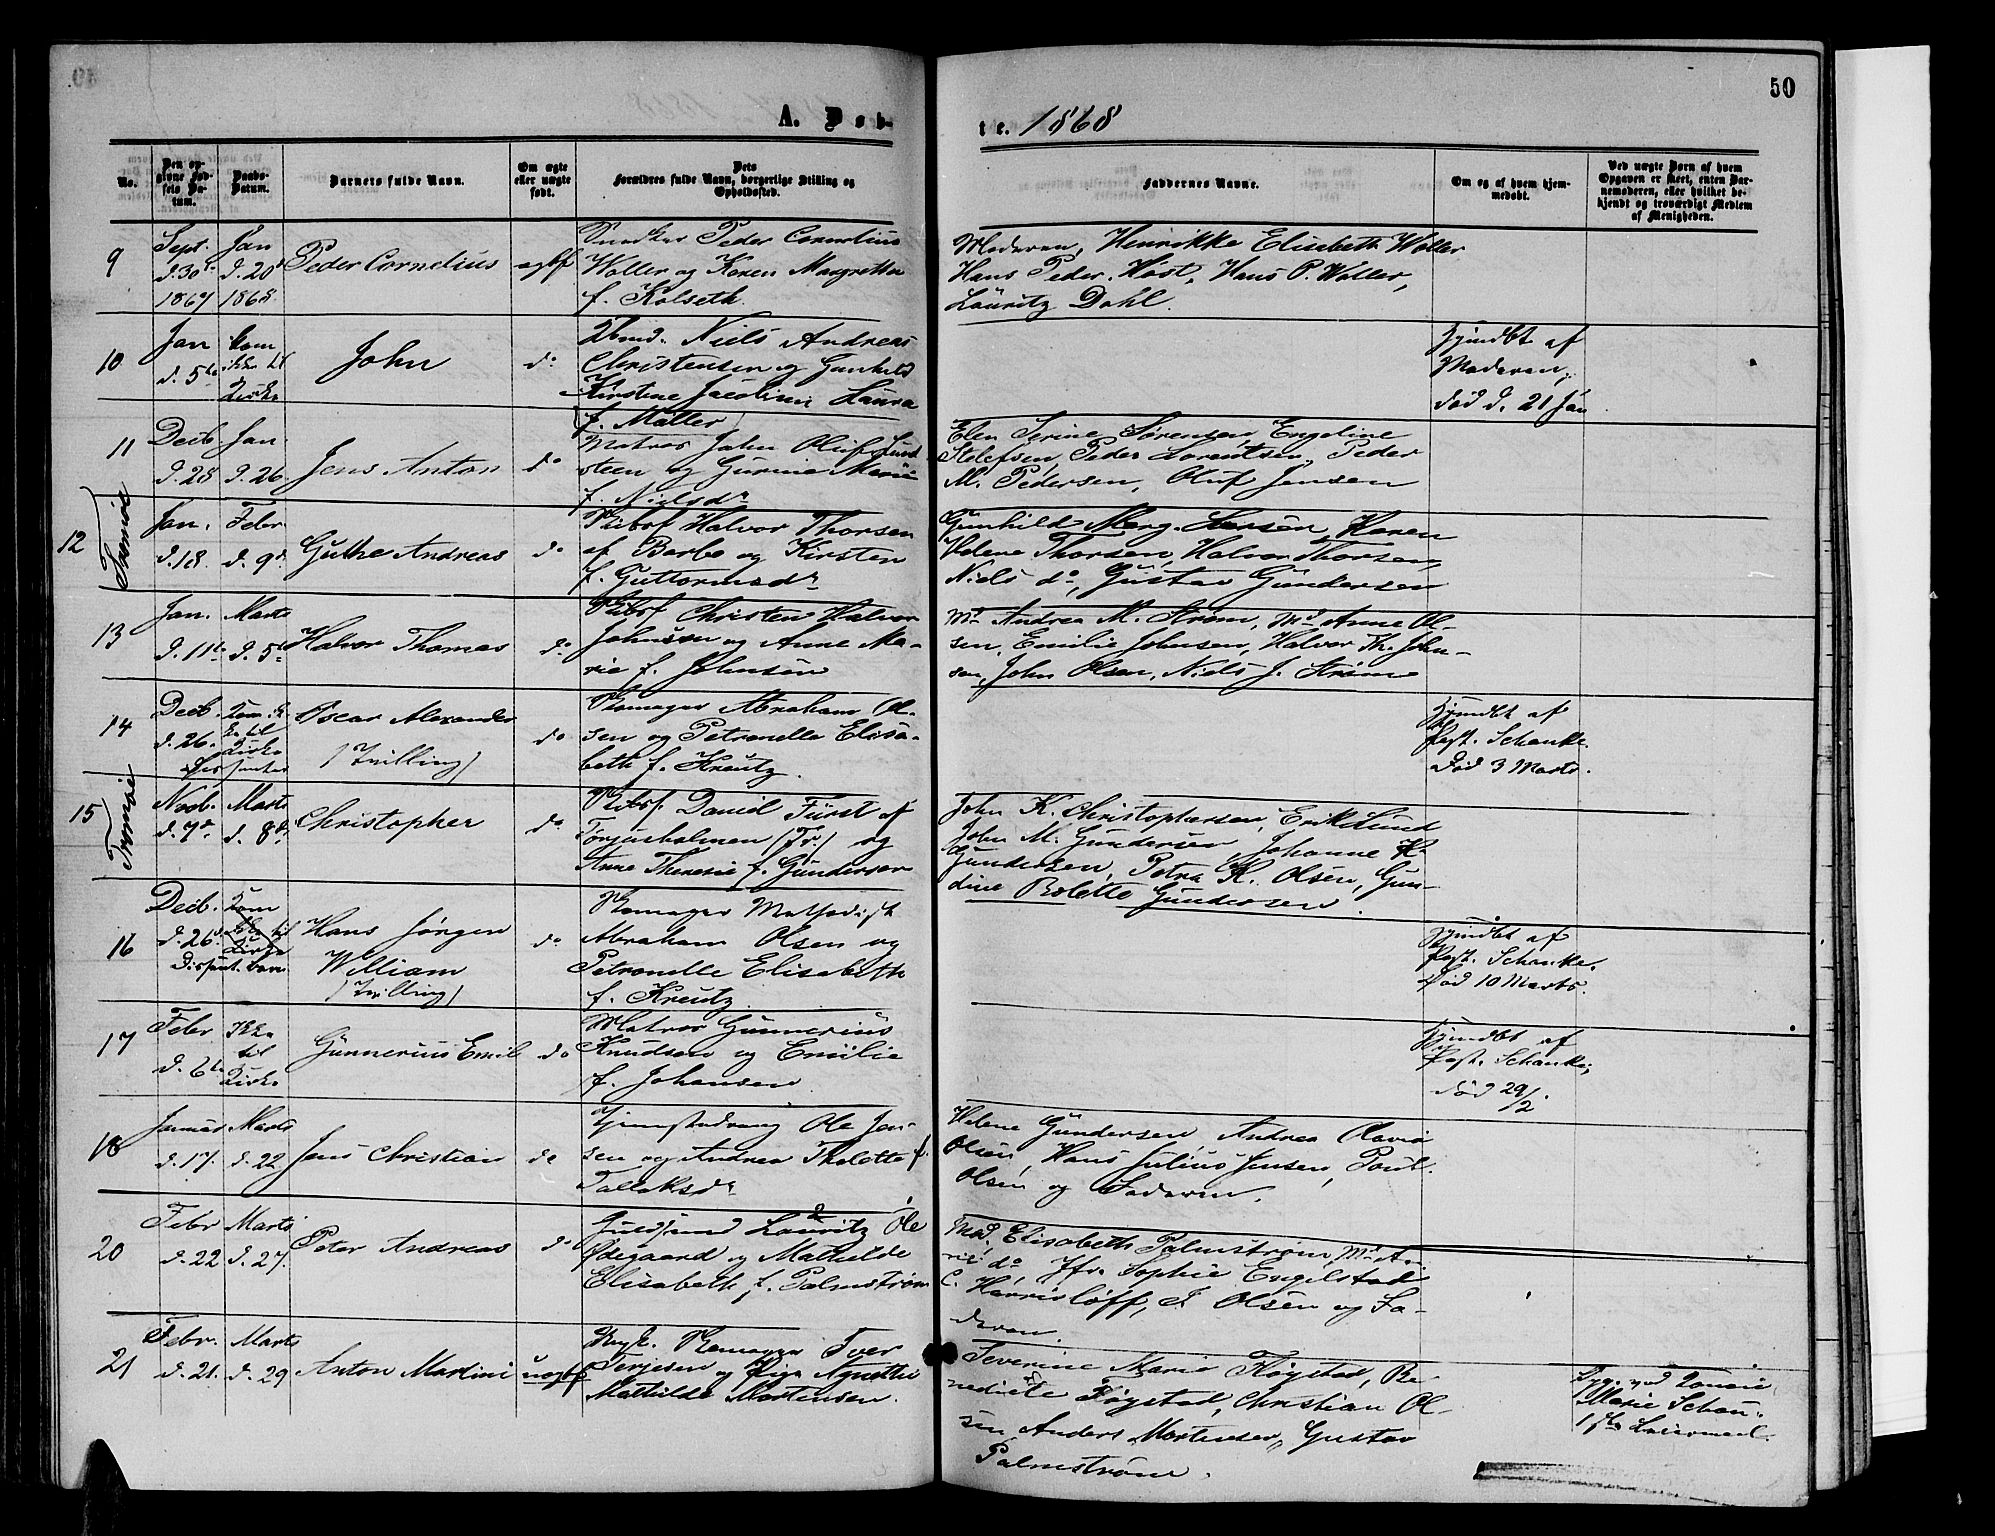 50
A. Døb-
te. 1868
No.
Den opgivne Fødsels Datum.
Daabs-Datum.
Barnets fulde Navn.
Om ægte eller uægte født.
Dets Forældres fulde Navn, borgerlige Stilling og Opholdssted.
Faddernes Navne.
Om og af hvem hjemmedøbt.
Ved uægte Børn af hvem Opgaven er skeet, enten Barnemoderen, eller hvilket bekjendt og troværdigt Medlem af Menigheden.
9
Sept. d. 30te 1867
Jan d. 20d 1868
Peder Cornelius
ægtf
Snedker Peder Cornelius
Woller og Karen Margrethe
f. Kolseth
Moderen, Henrikke Elisabeth Woller
Hans Peder Høst, Hans P. Woller,
Lauritz Dahl.
10
Jan d. 5te
kom ikke til Kirke
John
do
Niels Andreas
Christensen og Gunhild
Kirstine Jacobine Laura
f. Møller
Hjmdbt af
Moderen,
død d. 21 Jan
11
Decb d. 28
Jan. d. 26
Jens Anton
do
Matros John Oluf Lund-
steen og Gurine Marie
f. Nielsdr
Elen Serine Sørensen, Engeline
Stelefsen, Peder Lorentsen, Peder
M. Pedersen, Oluf Jensen
12
Tromøe
Jan. d. 18
Febr d. 9d
Guthe Andreas
do
Skibsf Halvor Thorsen
af Barbo og Kirsten
f. Guttormsdr
Gunhild Marg. Larsen, Karen
Helene Thorsen, Halvor Thorsen,
Niels do, Gustav Gundersen
13
Jan. d. 11te
Marts d. 5te
Halvor Thomas
do
Skibsf Christen Halvor
Johnsen og Anne Ma-
rie f. Johnsen
Md Andrea M. Strøm, Md Anne Ol-
sen, Emilie Johnsen, Halvor Th. John-
sen, John Olsen, Niels J. Strøm
14
Decb. d. 26.
Kom ik-
ke til
Kirke
Dissenter
Oscar Alexander
(Tvilling)
do
Skomager Abraham Ol-
sen og Petronelle Elisa-
beth f. Kreutz.
Hjmdbt af
Past. Schanke.
Død 3 Marts.
15
Tromøe
Novb. d. 7de
Marts d. 8de
Christopher
do
Skibsf. David Fürst af
Torjusholmen (Tr.) og
Anne Theresie f. Gundersen
John K. Christophersen, Erik Lund
John M. Gundersen, Johanne K
Gundersen, Petra K. Olsen, Gun-
dine Bolette Gundersen.
16
Decb. d. 26d.
Kom ikke til Kirke
Dissent. barn
Hans Jørgen
William
(Tvilling)
do
Skomager Methodist
Abraham Olsen og
Petronelle Elisabeth
f. Kreutz
Hjmdbt af
Past. Schanke.
Død 10 Marts.
17
Febr d. 6te
Ikke
til
Kirke
Gunnerius Emil
do
Matros Gunnerius
Knudsen og Emilie
f. Johansen
Hjmdbt af
Past. Schanke,
død 29/2.
18
Januar d. 17.
Marts d. 22
Jens Christian
do
Tjenestedreng Ole Jen-
sen og Andrea Tholette f.
Tallaksdr
Helene Gundersen, Andrea Olavia
Olsen, Hans Julius Jensen, Poul
Olsen og Faderen.
20
Febr d. 22
Marts d. 27.
Peter Andreas
do
Guldsmed Lauritz Ole
Ødegaard og Mathilde
Elisabeth f. Palmstrøm
Mad. Elisabeth Palmstrøm, Md A-
do Jfr. Sophie Engelstad
C. Harrisløff, J. Olsen og Fa-
deren.
21
Febr. d. 21.
Marts d. 29
Anton Martini
uægtef
Ungk. Skomager Iver
Terjesen og Pige Agnethe
Mathilde Mortensen.
Severine Marie Føgstad, Be-
nedicte Føgstad, Christian Ol-
sen, Anders Mortensen, Gustav
Palmstrøm.
Marie Schau-
1ste Leiermaal.